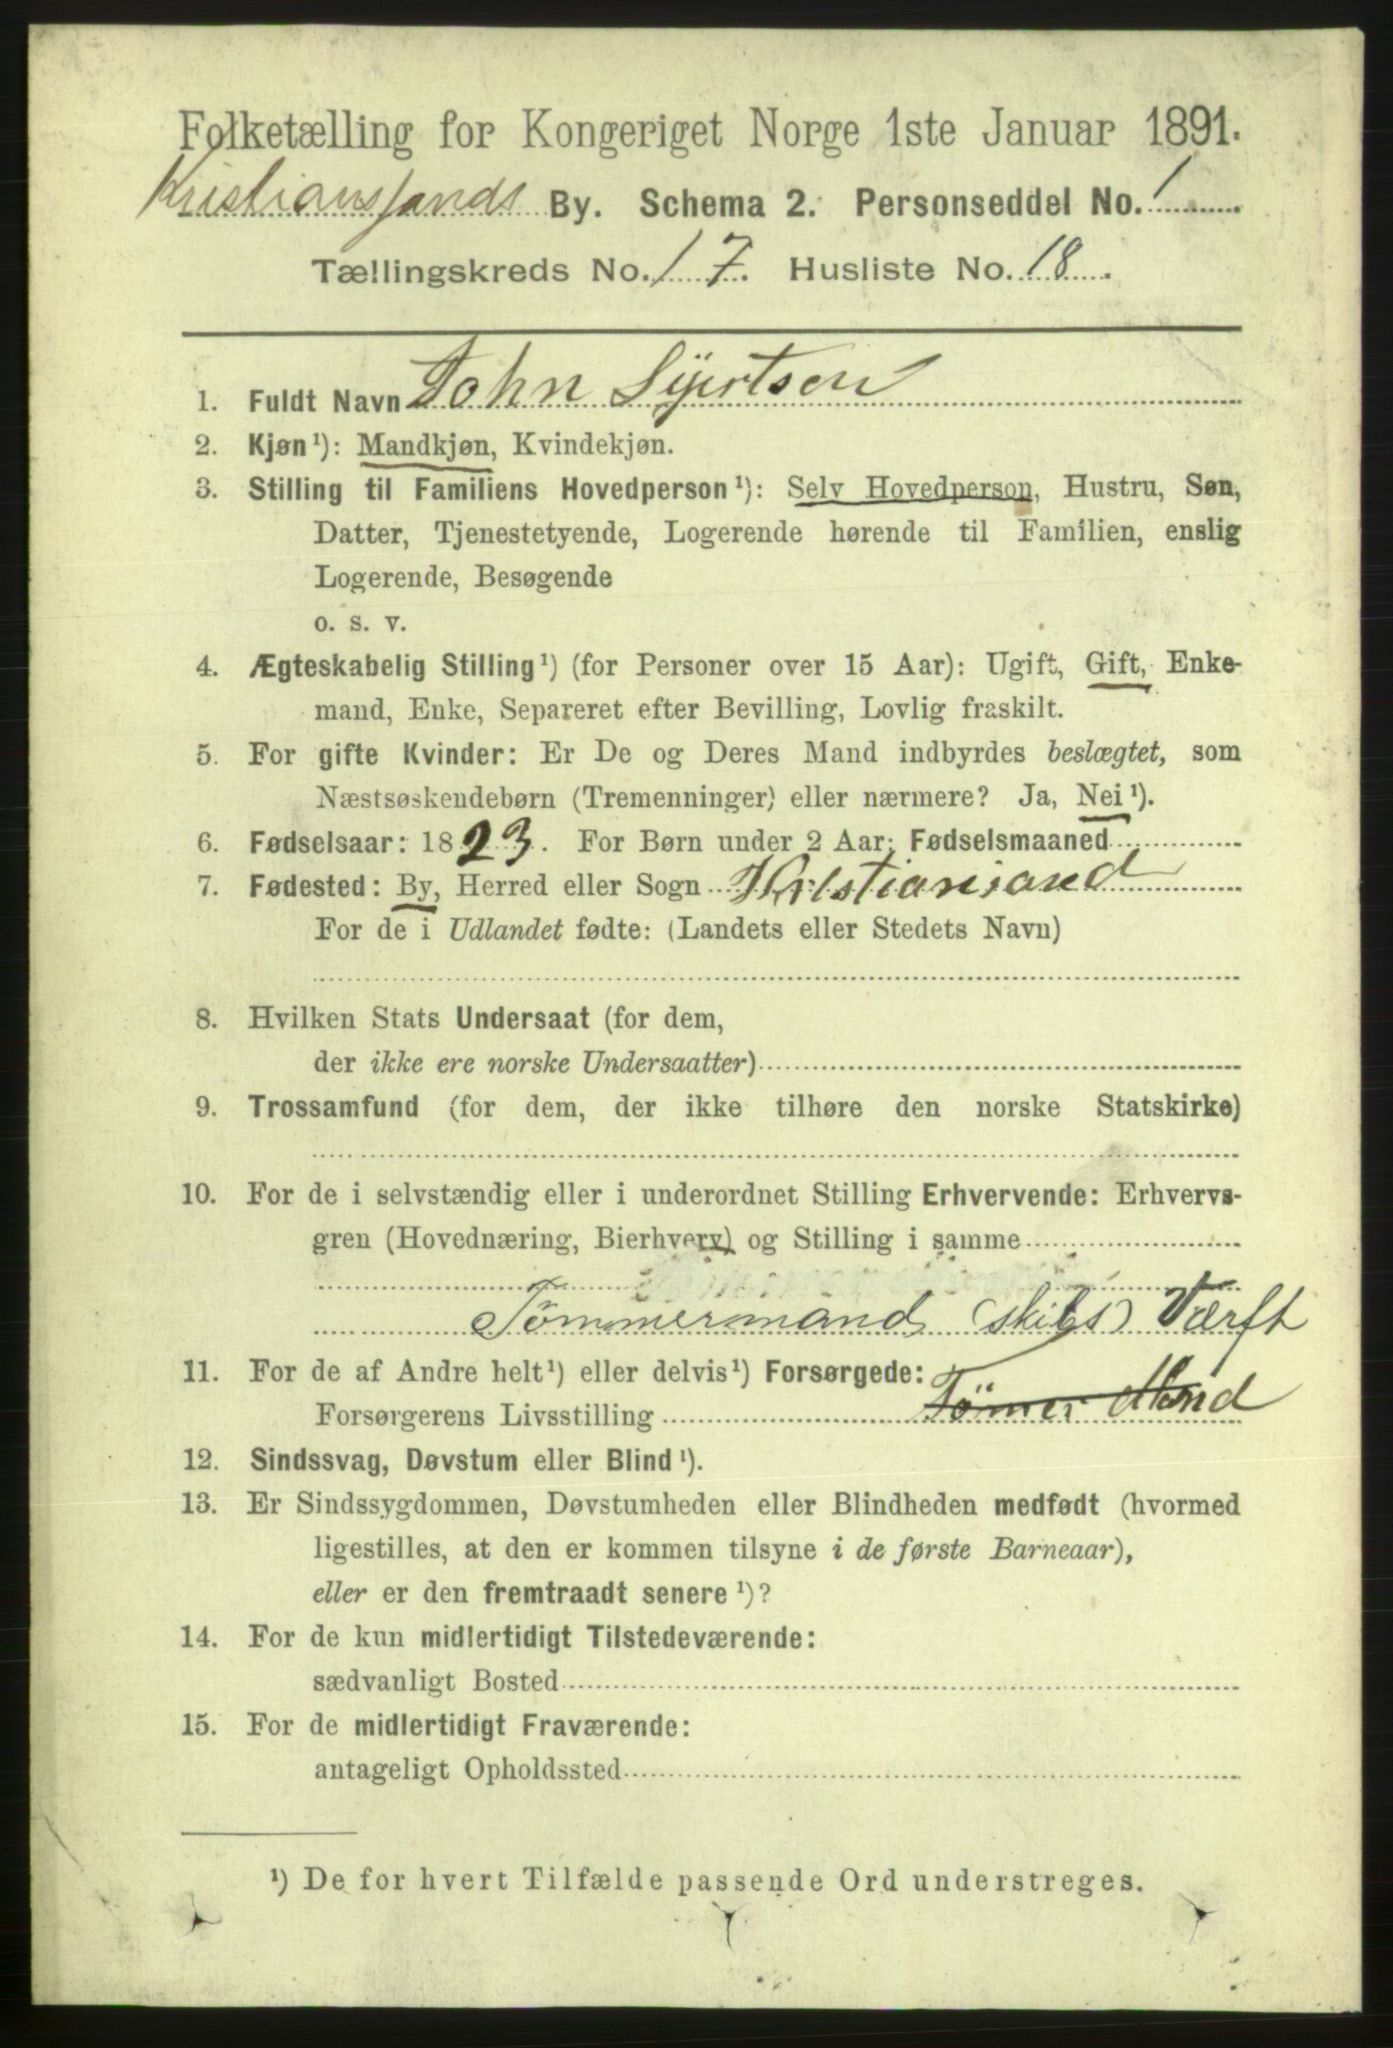 Folketælling for Kongeriget Norge 1ste Januar 1891.
Kristianssands By. Schema 2. Personseddel No. 1
Tællingskreds No. 17. Husliste No. 18.
1. Fuldt Navn John Syvertsen
2. Kjøn¹): Mandkjøn, Kvindekjøn.
3. Stilling til Familiens Hovedperson¹): Selv Hovedperson, Hustru, Søn,
Datter, Tjenestetyende, Logerende hørende til Familien, enslig
Logerende, Besøgende
o. s. v.
4. Ægteskabelig Stilling¹) (for Personer over 15 Aar): Ugift, Gift, Enke-
mand, Enke, Separeret efter Bevilling, Lovlig fraskilt.
5. For gifte Kvinder: Er De og Deres Mand indbyrdes beslægtet, som
Næstsøskendebørn (Tremenninger) eller nærmere? Ja, Nei¹).
6. Fødselsaar: 1823. For Børn under 2 Aar: Fødselsmaaned
7. Fødested: By, Herred eller Sogn Kristiansand
For de i Udlandet fødte: (Landets eller Stedets Navn)
8. Hvilken Stats Undersaat (for dem,
der ikke ere norske Undersaatter)
9. Trossamfund (for dem, der ikke tilhøre den norske Statskirke)
10. For de i selvstændig eller i underordnet Stilling Erhvervende: Erhvervs-
gren (Hovednæring, Bierhverv) og Stilling i samme
Tömmermand (skibs) Værft
11. For de af Andre helt¹) eller delvis¹) Forsørgede:
Forsørgerens Livsstilling Tömer Mand
12. Sindssvag, Døvstum eller Blind¹).
13. Er Sindssygdommen, Døvstumheden eller Blindheden medfødt (hvormed
ligestilles, at den er kommen tilsyne i de første Barneaar),
eller er den fremtraadt senere¹)?
14. For de kun midlertidigt Tilstedeværende:
sædvanligt Bosted
15. For de midlertidigt Fraværende:
antageligt Opholdssted
¹) De for hvert Tilfælde passende Ord understreges.